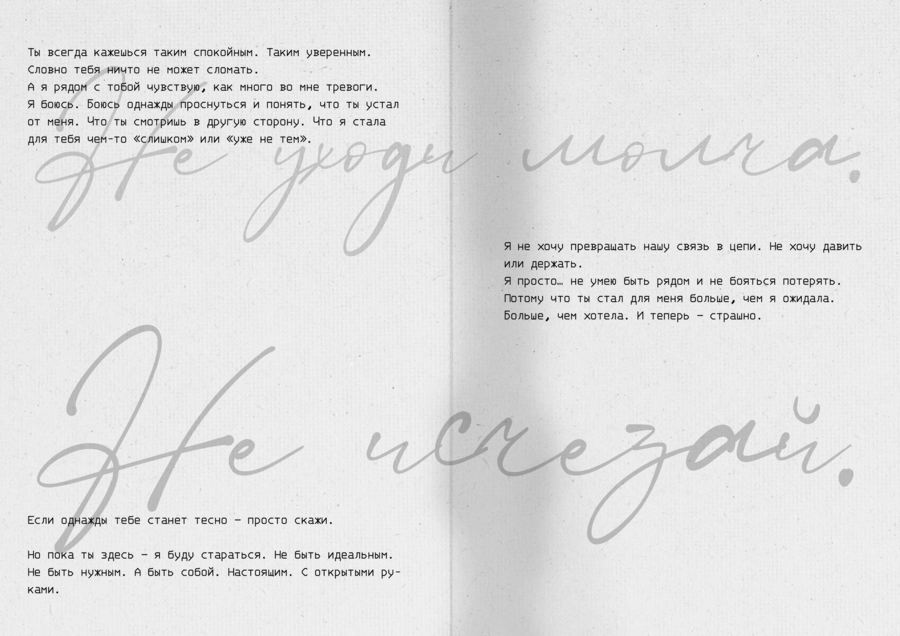 Ты всегда кажешься таким спокойным. Таким уверенным.
Словно тебя ничто не может сломать.
А я рядом с тобой чувствую, как много во мне тревоги.
Я боюсь. Боюсь однажды проснуться и понять, что ты устал
от меня. Что ты смотришь в другую сторону. Что я стала
для тебя чем-то «слишком» или «уже не тем».
Не уходи молча.
Я не хочу превращать нашу связь в цепи. Не хочу давить
или держать.
Я просто… не умею быть рядом и не бояться потерять.
Потому что ты стал для меня больше, чем я ожидала.
Больше, чем хотела. И теперь – страшно.
Не исчезай.
Если однажды тебе станет тесно – просто скажи.
Но пока ты здесь – я буду стараться. Не быть идеальным.
Не быть нужным. А быть собой. Настоящим. С открытыми ру-
ками.